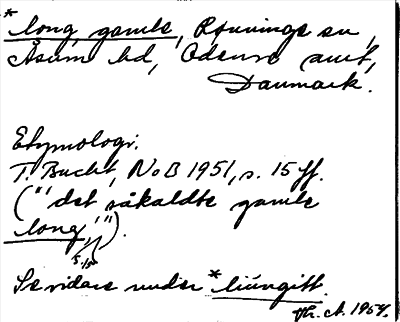 *long gamle, Rønninge sn,
Åsum hd, Odense amt,
Danmark.
Etymologi.
T. Bucht, NoB 1951, s. 15 ff.
("det såkaldte gamle
long").
Se vidare under *liúngitt.
1954.